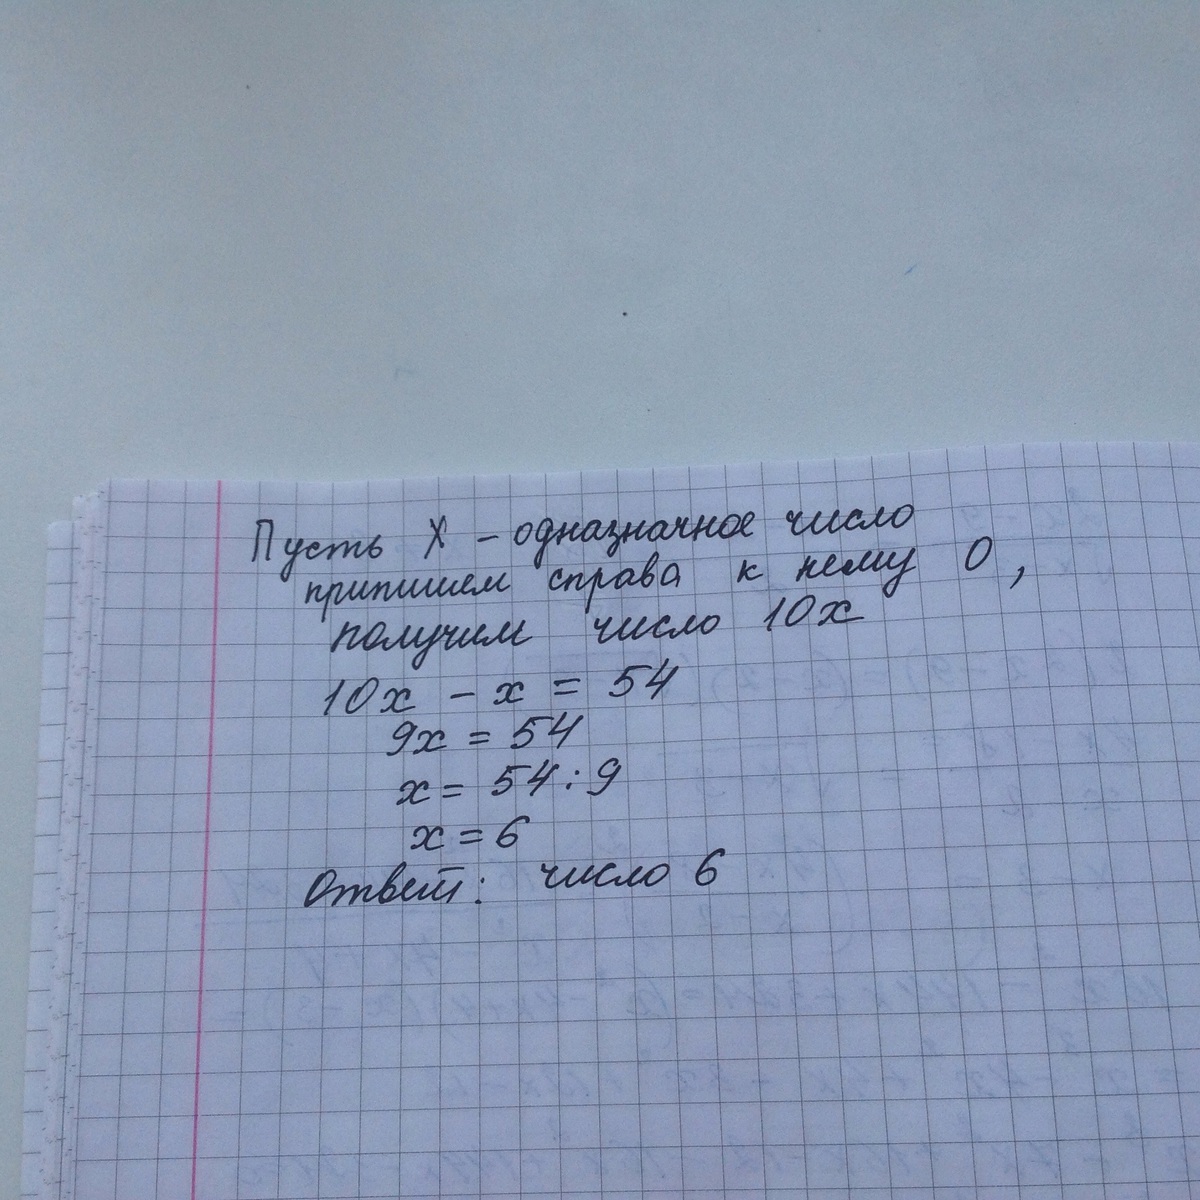 Пусть X - однозначное число
припишем справа к нему 0,
получим число 10x
10x - x = 54
9x = 54
x = 54 : 9
x = 6
Ответ: число 6